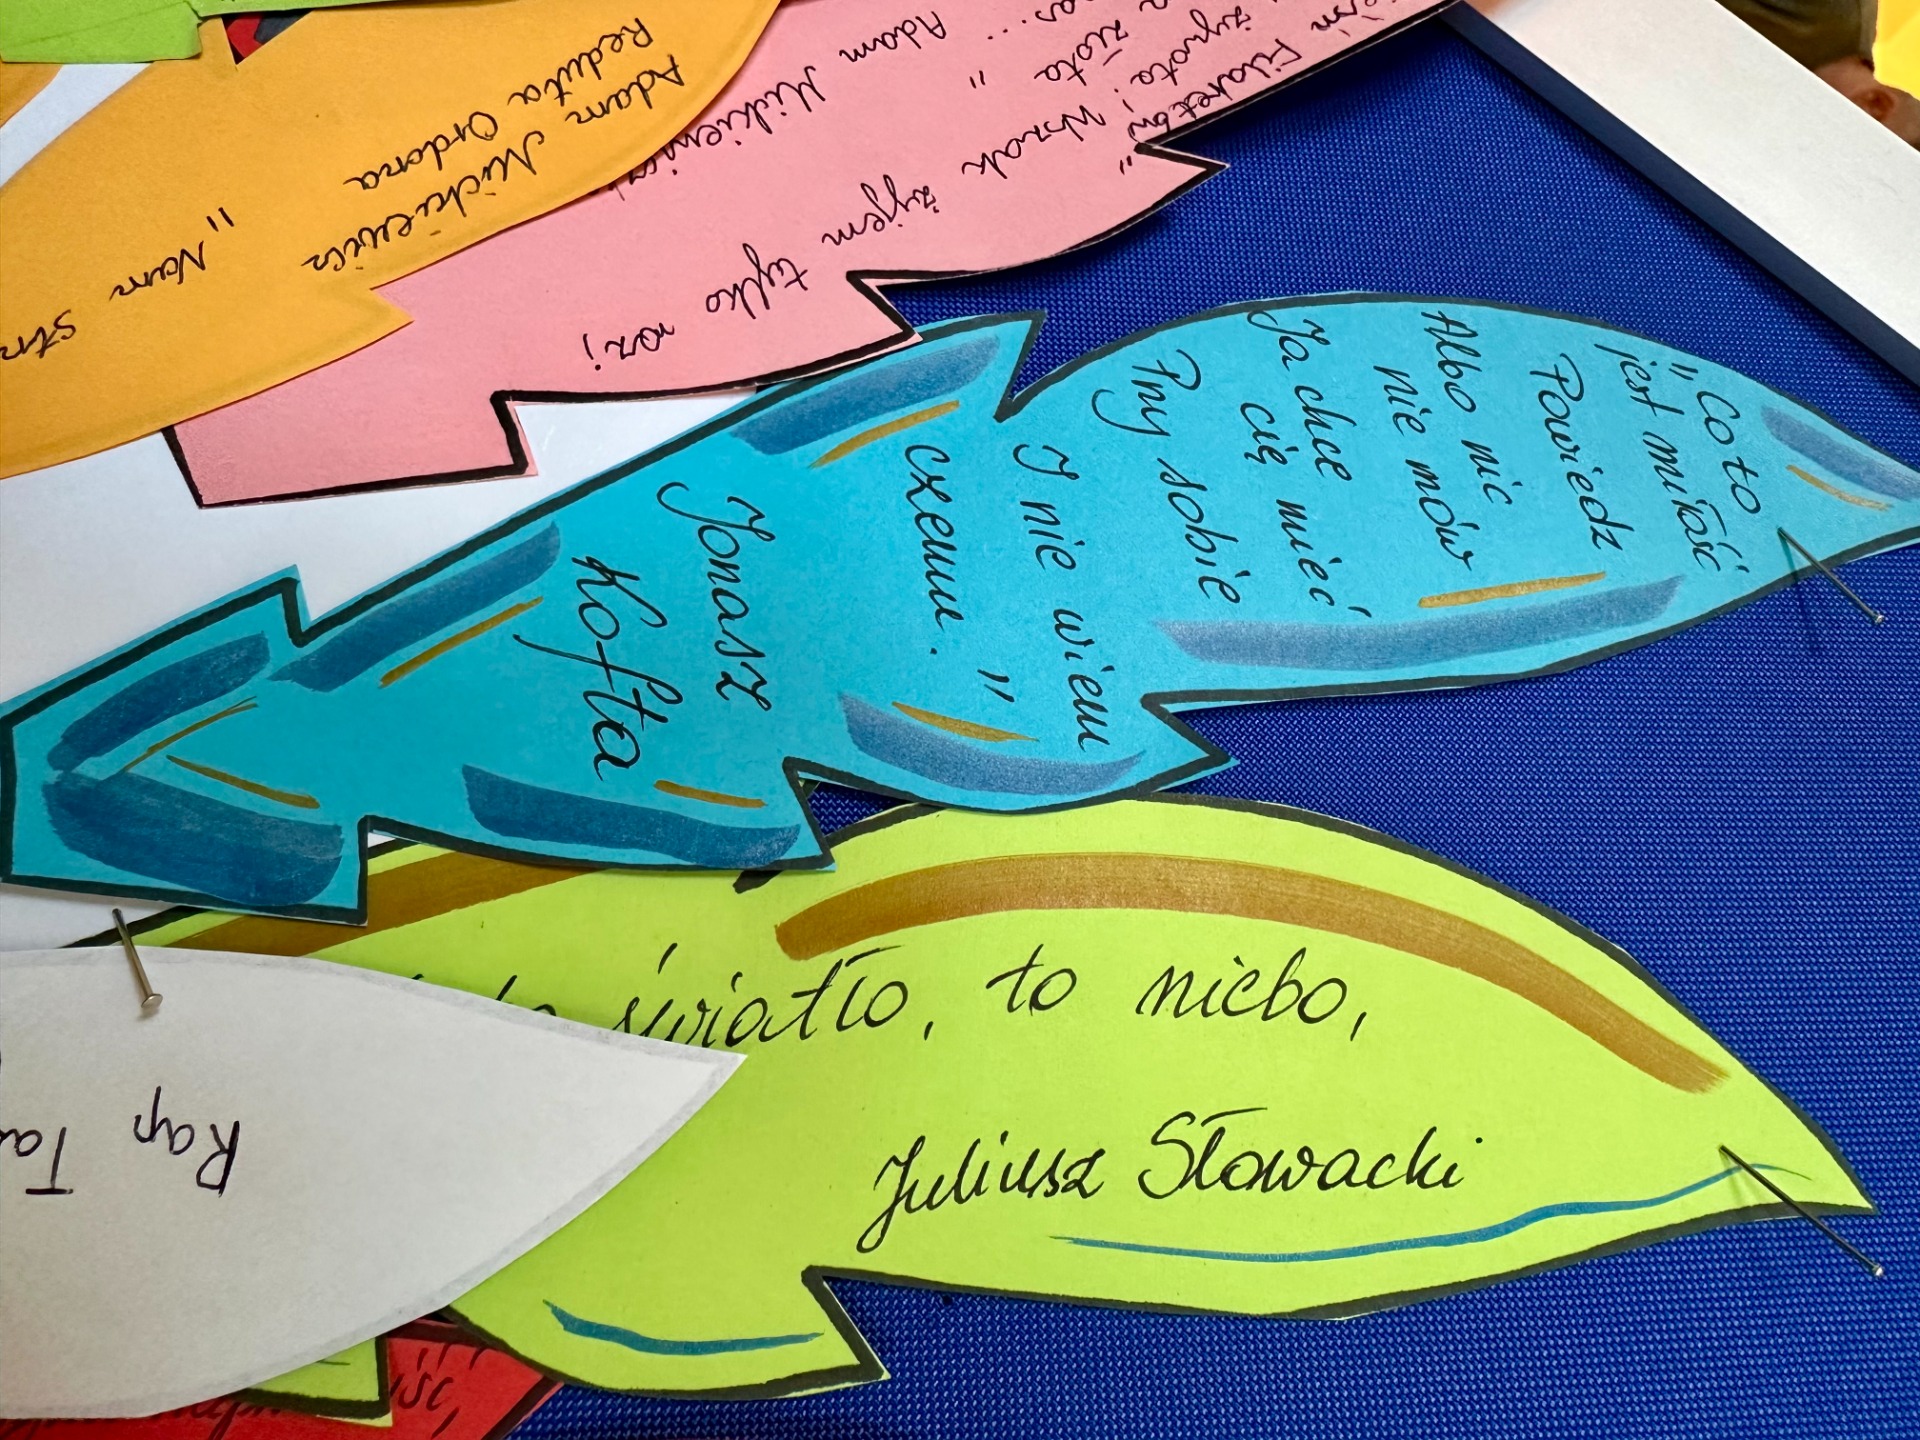 Adam Mickiewicz
Reduta Ordona
" Nam
Filaretów
"
żywota!
Wszak żyjem tylko raz;
złota
"
Adam
" Co to
jest miłość
Powiedz
Albo nic
nie mów
Ja chce
cię mieć
Przy sobie
I nie wiem
czemu. "
Jonasz
Kofta
światło, to niebo,
Juliusz Słowacki
Rap